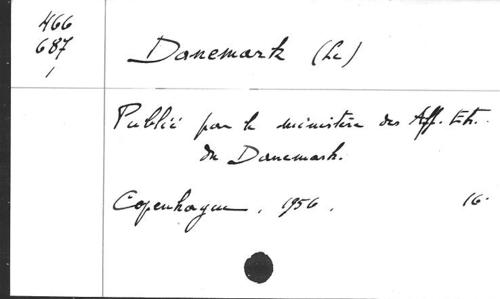 466
687
1
Danemark (Le)
Publié par le ministère des Aff. Etr.
du Danemark.
Copenhague, 1956. 16°